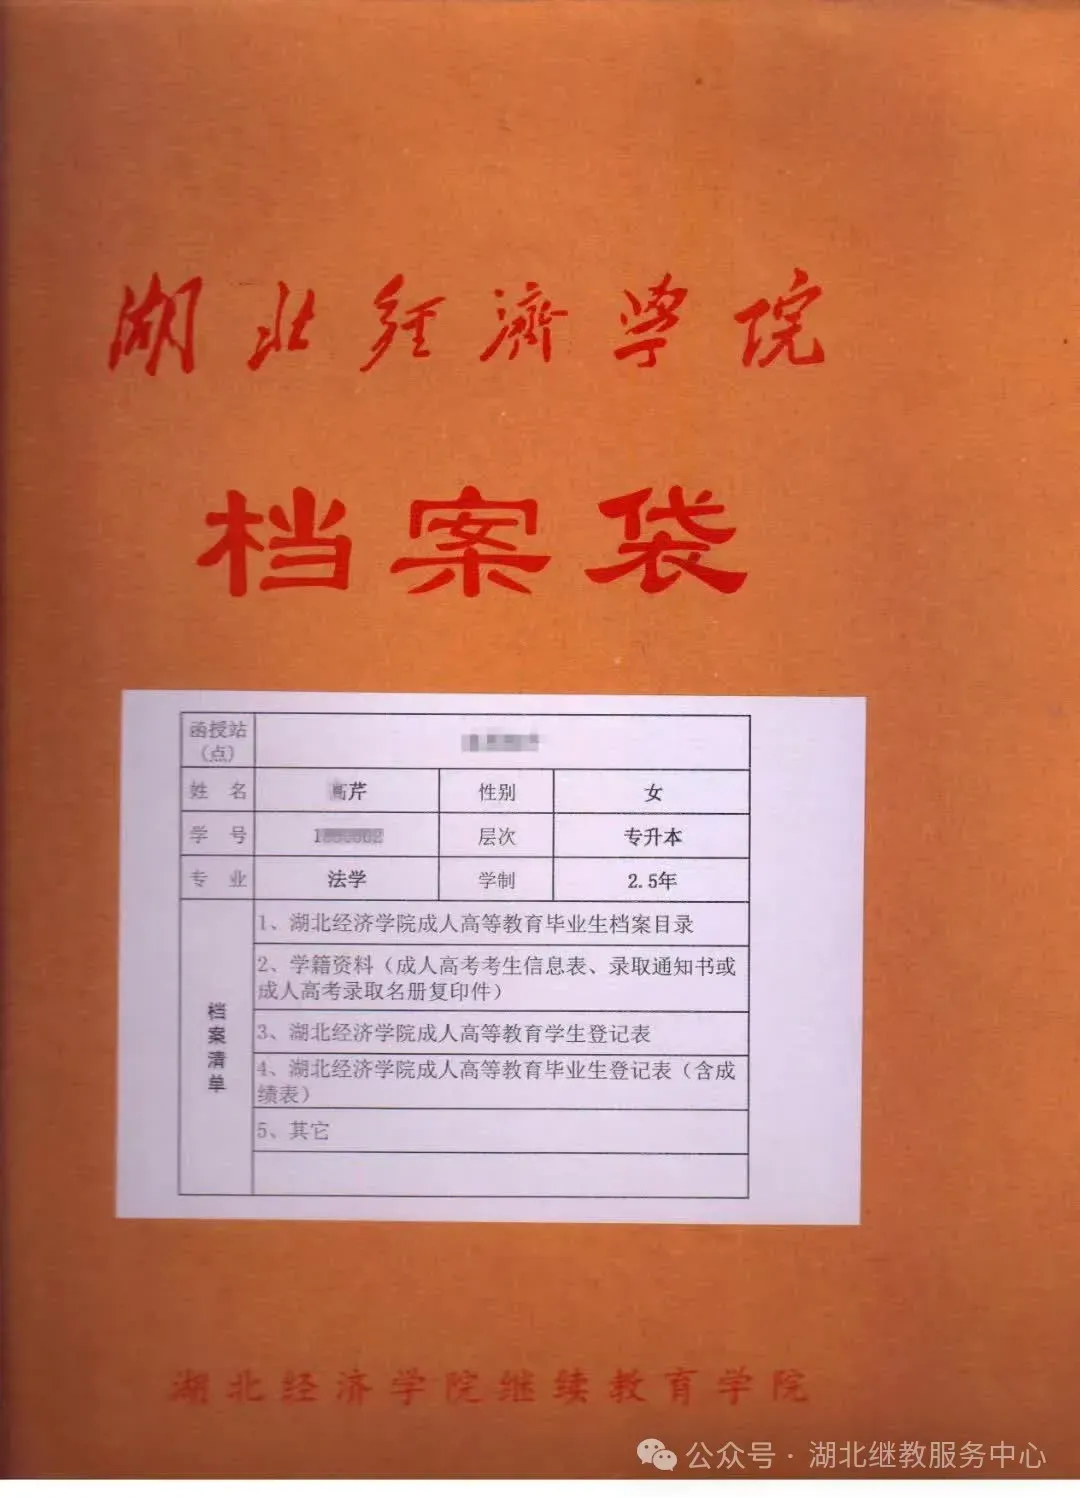 湖北经济学院
档案袋
函授站
(点)
姓 名 芹 性别 女
学 号 层次 专升本
专 业 法学 学制 2.5年
档案清单
1、湖北经济学院成人高等教育毕业生档案目录
2、学籍资料（成人高考考生信息表、录取通知书或
成人高考录取名册复印件）
3、湖北经济学院成人高等教育学生登记表
4、湖北经济学院成人高等教育毕业生登记表（含成
绩表）
5、其它
湖北经济学院继续教育学院
公众号·湖北继教服务中心